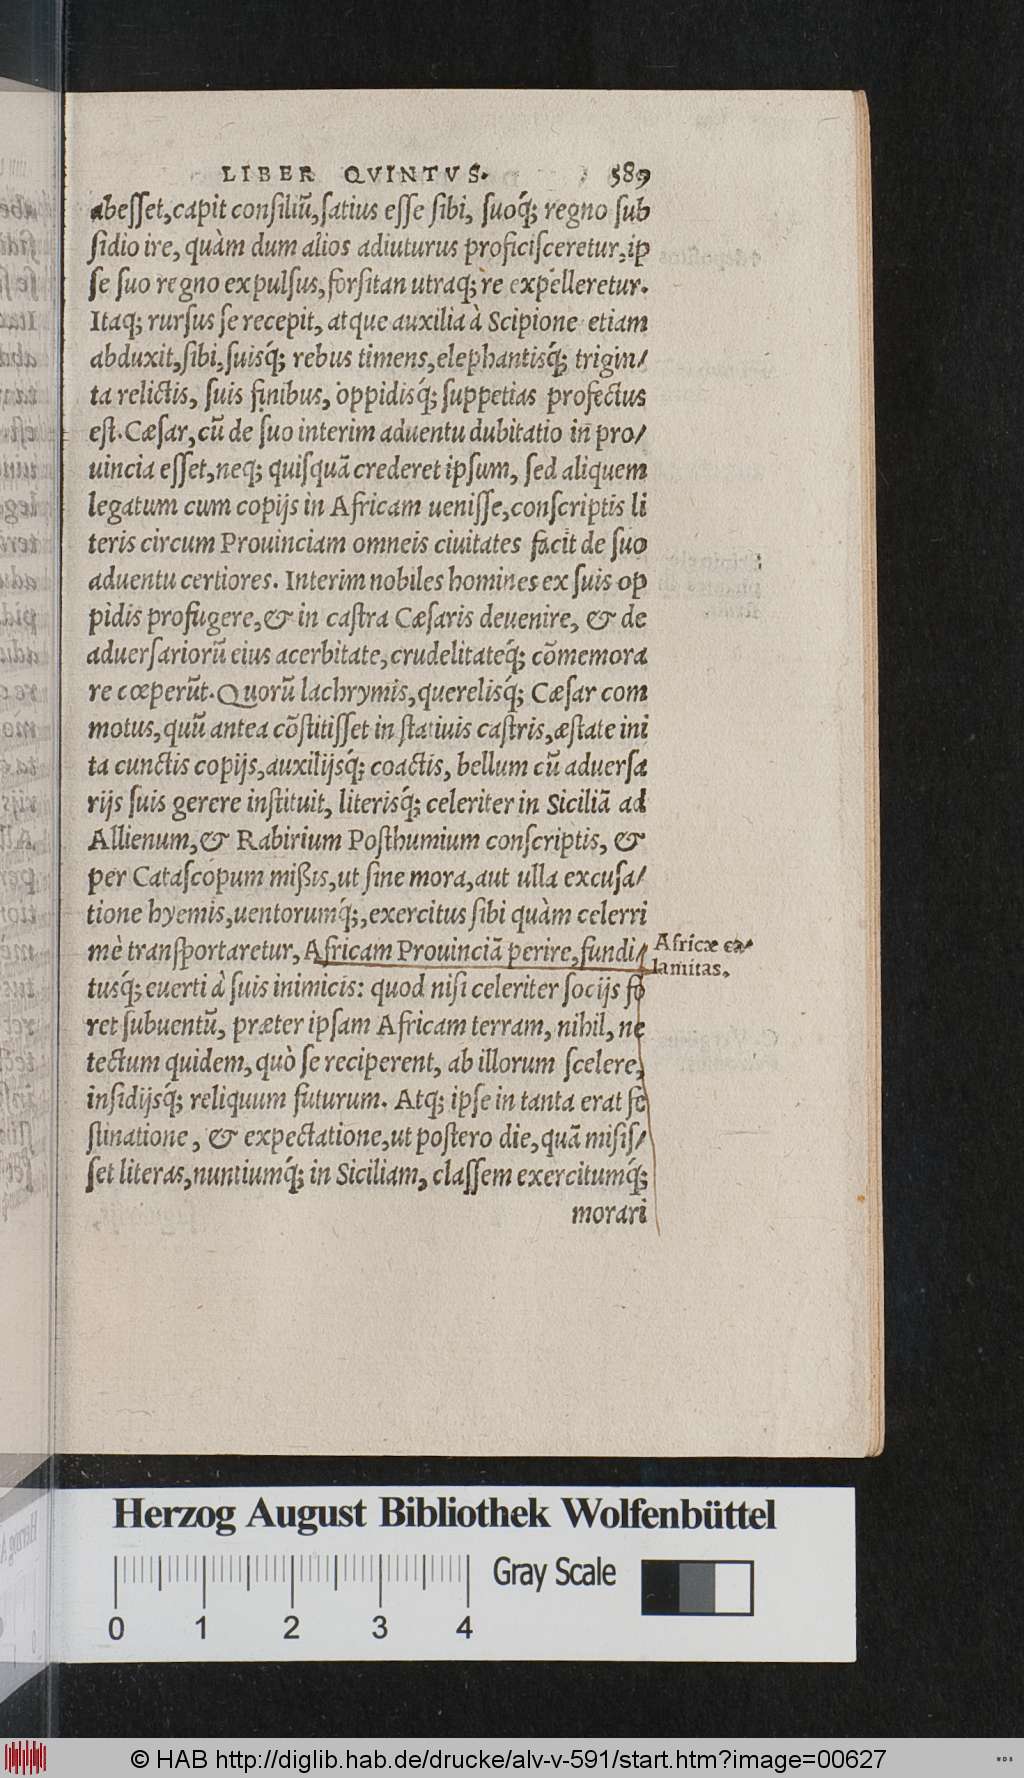 LIBER QVINTVS. 589
abesset, capit consiliũ, satius esse sibi, suoq́; regno sub
sidio ire, quàm dum alios adiuturus proficisceretur, ip
se suo regno expulsus, forsitan utraq; re expelleretur.
Itaq; rursus se recepit, atque auxilia à Scipione etiam
abduxit, sibi, suisq́; rebus timens, elephantisq́; trigin/
ta relictis, suis finibus, oppidisq́; suppetias profectus
est. Cæsar, cũ de suo interim aduentu dubitatio in pro/
uincia esset, neq; quisquã crederet ipsum, sed aliquem
legatum cum copijs in Africam uenisse, conscriptis li
teris circum Prouinciam omneis ciuitates facit de suo
aduentu certiores. Interim nobiles homines ex suis op
pidis profugere, & in castra Cæsaris deuenire, & de
aduersariorũ eius acerbitate, crudelitateq́; cõmemora
re cœperũt. Quorũ lachrymis, querelisq́; Cæsar com
motus, quũ antea cõstitisset in statiuis castris, æstate ini
ta cunctis copijs, auxilijsq́; coactis, bellum cũ aduersa
rijs suis gerere instituit, literisq́; celeriter in Siciliã ad
Allienum, & Rabirium Posthumium conscriptis, &
per Catascopum mißis, ut sine mora, aut ulla excusa/
tione hyemis, uentorumq́;, exercitus sibi quàm celerri
mè transportaretur, Africam Prouinciã perire, fundi/
tusq́; euerti à suis inimicis: quod nisi celeriter socijs fo
ret subuentũ, præter ipsam Africam terram, nihil, ne
tectum quidem, quò se reciperent, ab illorum scelere,
insidijsq́; reliquum futurum. Atq; ipse in tanta erat fe
stinatione, & expectatione, ut postero die, quã misis/
set literas, nuntiumq́; in Siciliam, classem exercitumq́;
morari
Africæ ca/
lamitas.
Herzog August Bibliothek Wolfenbüttel
Gray Scale
0 1 2 3 4
© HAB http://diglib.hab.de/drucke/alv-v-591/start.htm?image=00627